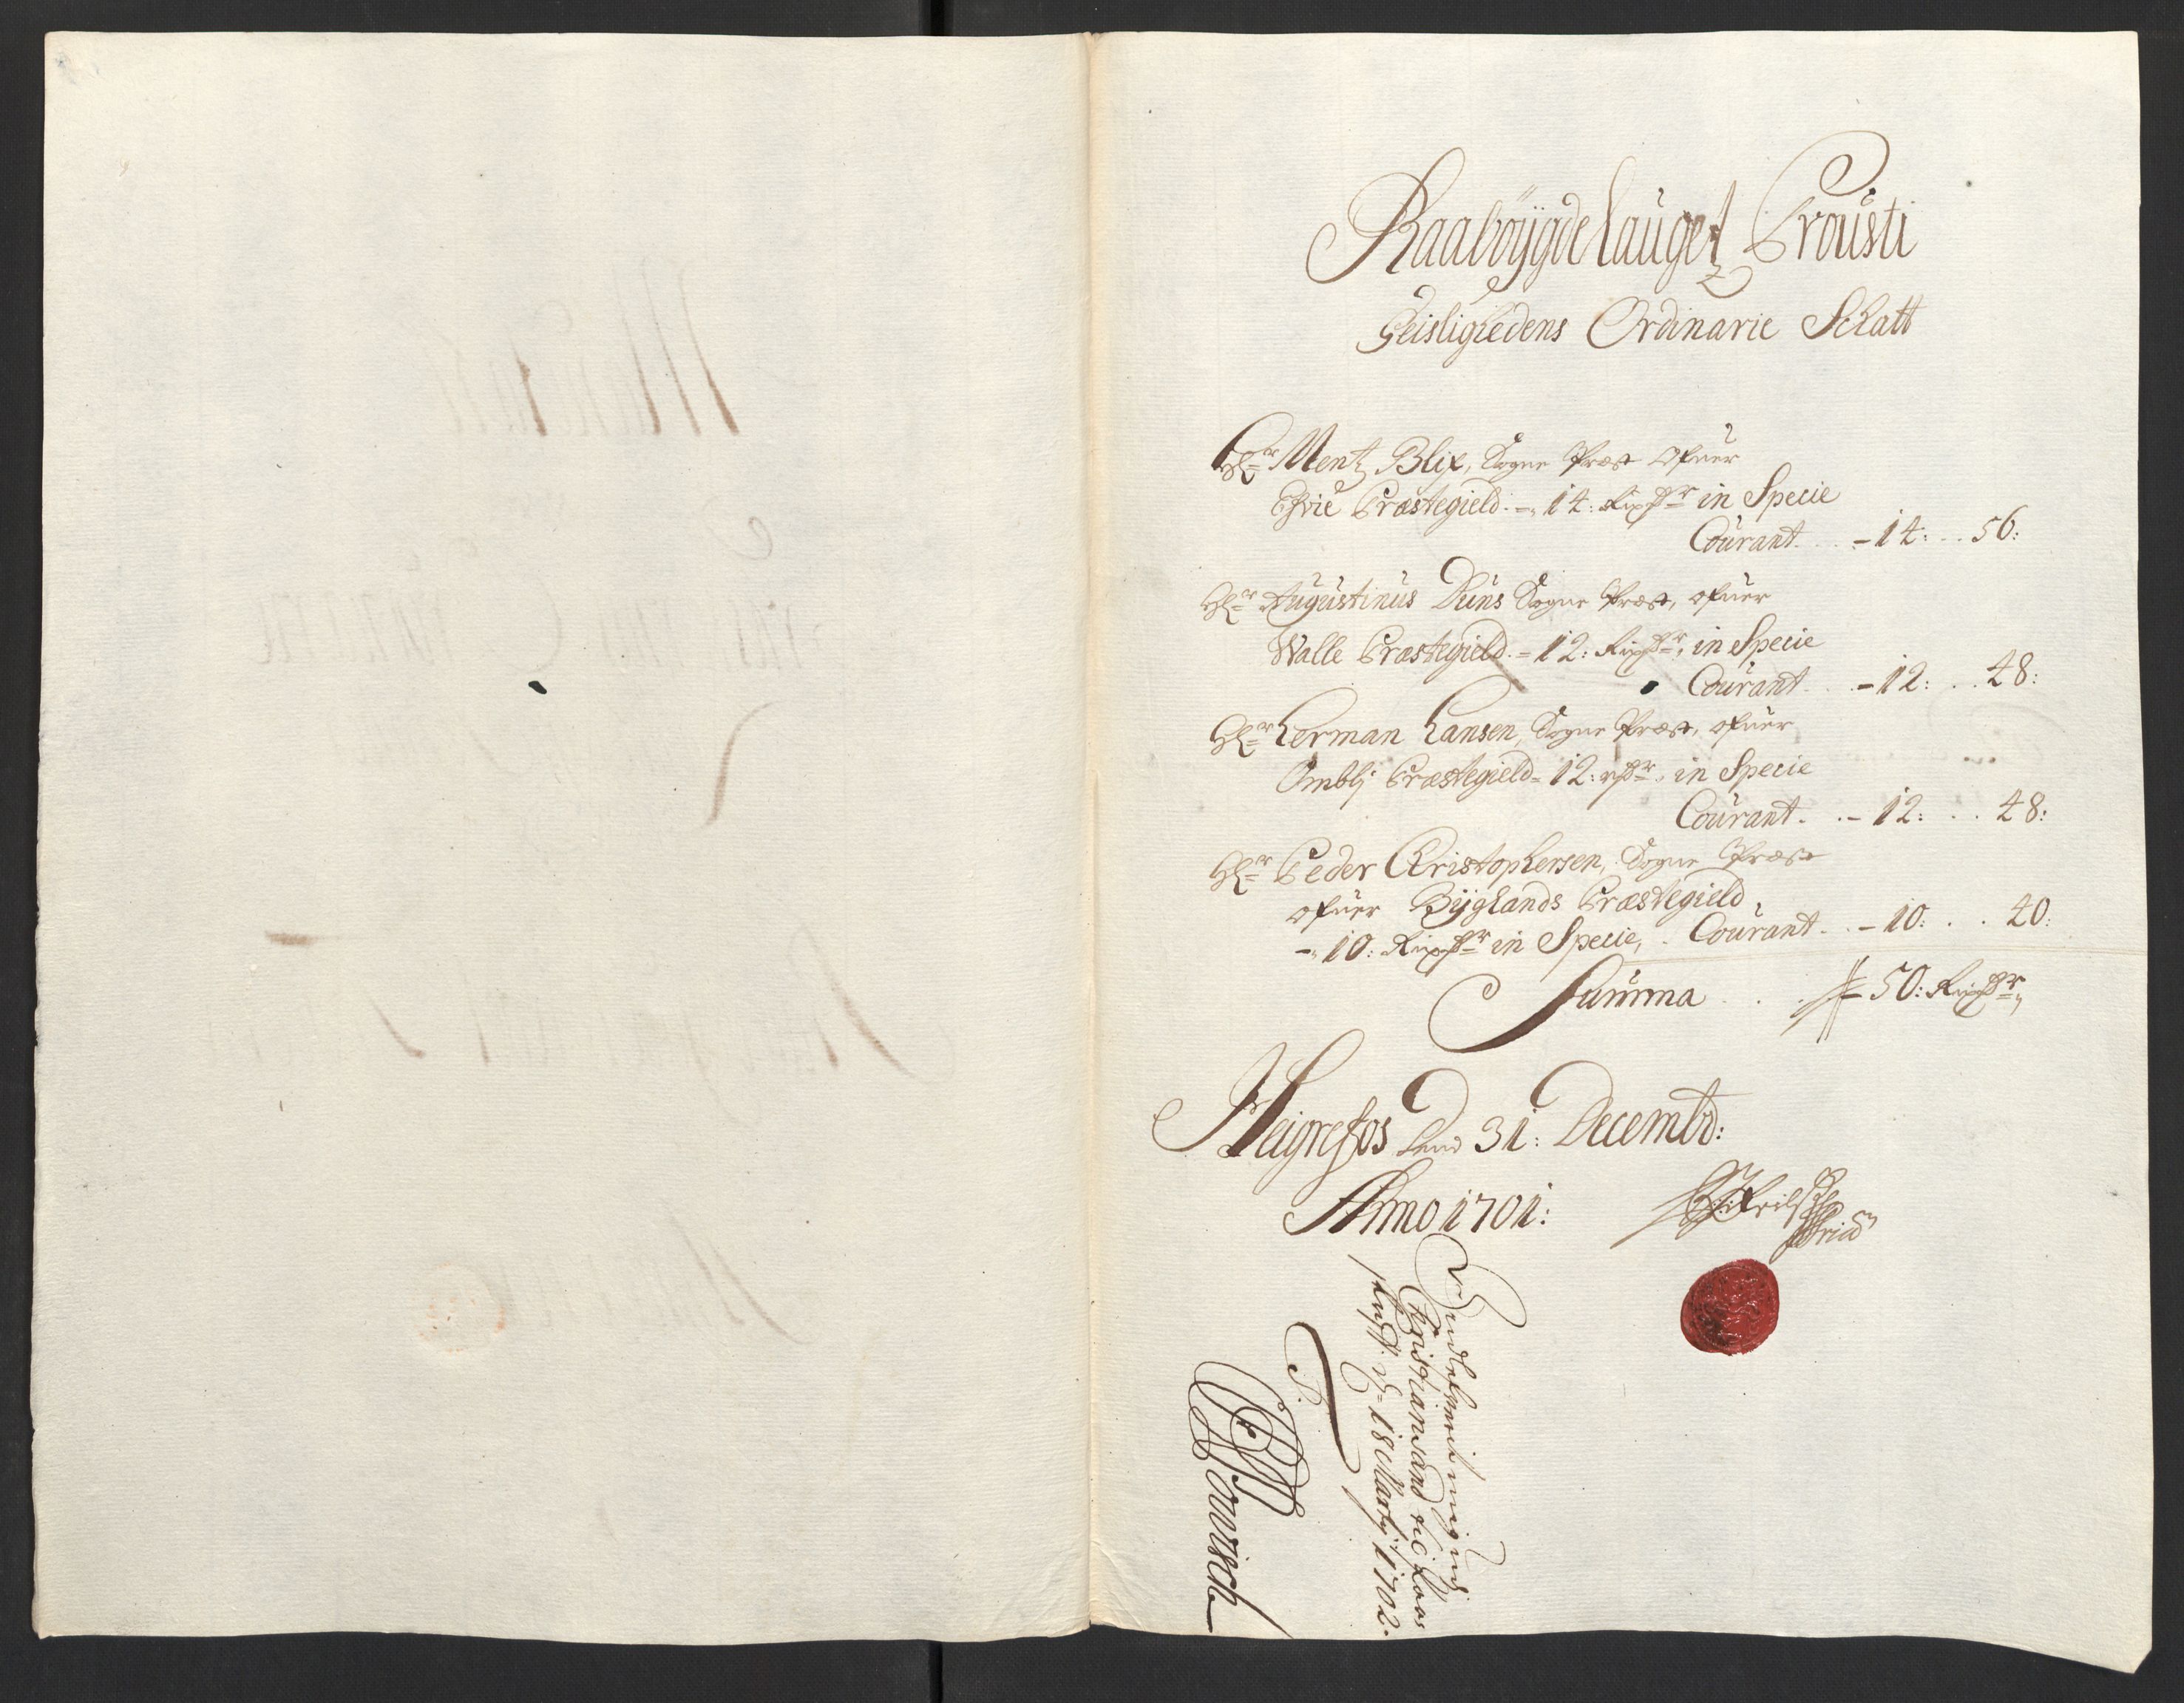 Raabøÿgdelauget Prousti
Geislighedens Ordinarie Schatt
Hr Mentz Blix, Sogne Præst Ofuer
Efvie Præstegield. - 14: Rixdr in Specie
Courant. - 14: 56:
Hr Augustinus Duns Sogne Præst, ofuer
Walle Præstegield. - 12: Rixdr, in Specie
Courant. - 12: 48:
Hr Herman Hansen, Sogne Præst, ofuer
Omblj Præstegield - 12: rdr, in Specie
Courant. - 12: 48:
Hr Peder Christophersen, Sogne Præst
ofuer Bÿglands Præstegield,
- 10: Rixdr in Specie, Courant. - 10: 40:
Summa - 50: Rixdr,
Heigrefos Dend 31: Decembr:
Anno 1701:
Christiansand
d= 18 Martj 1702.